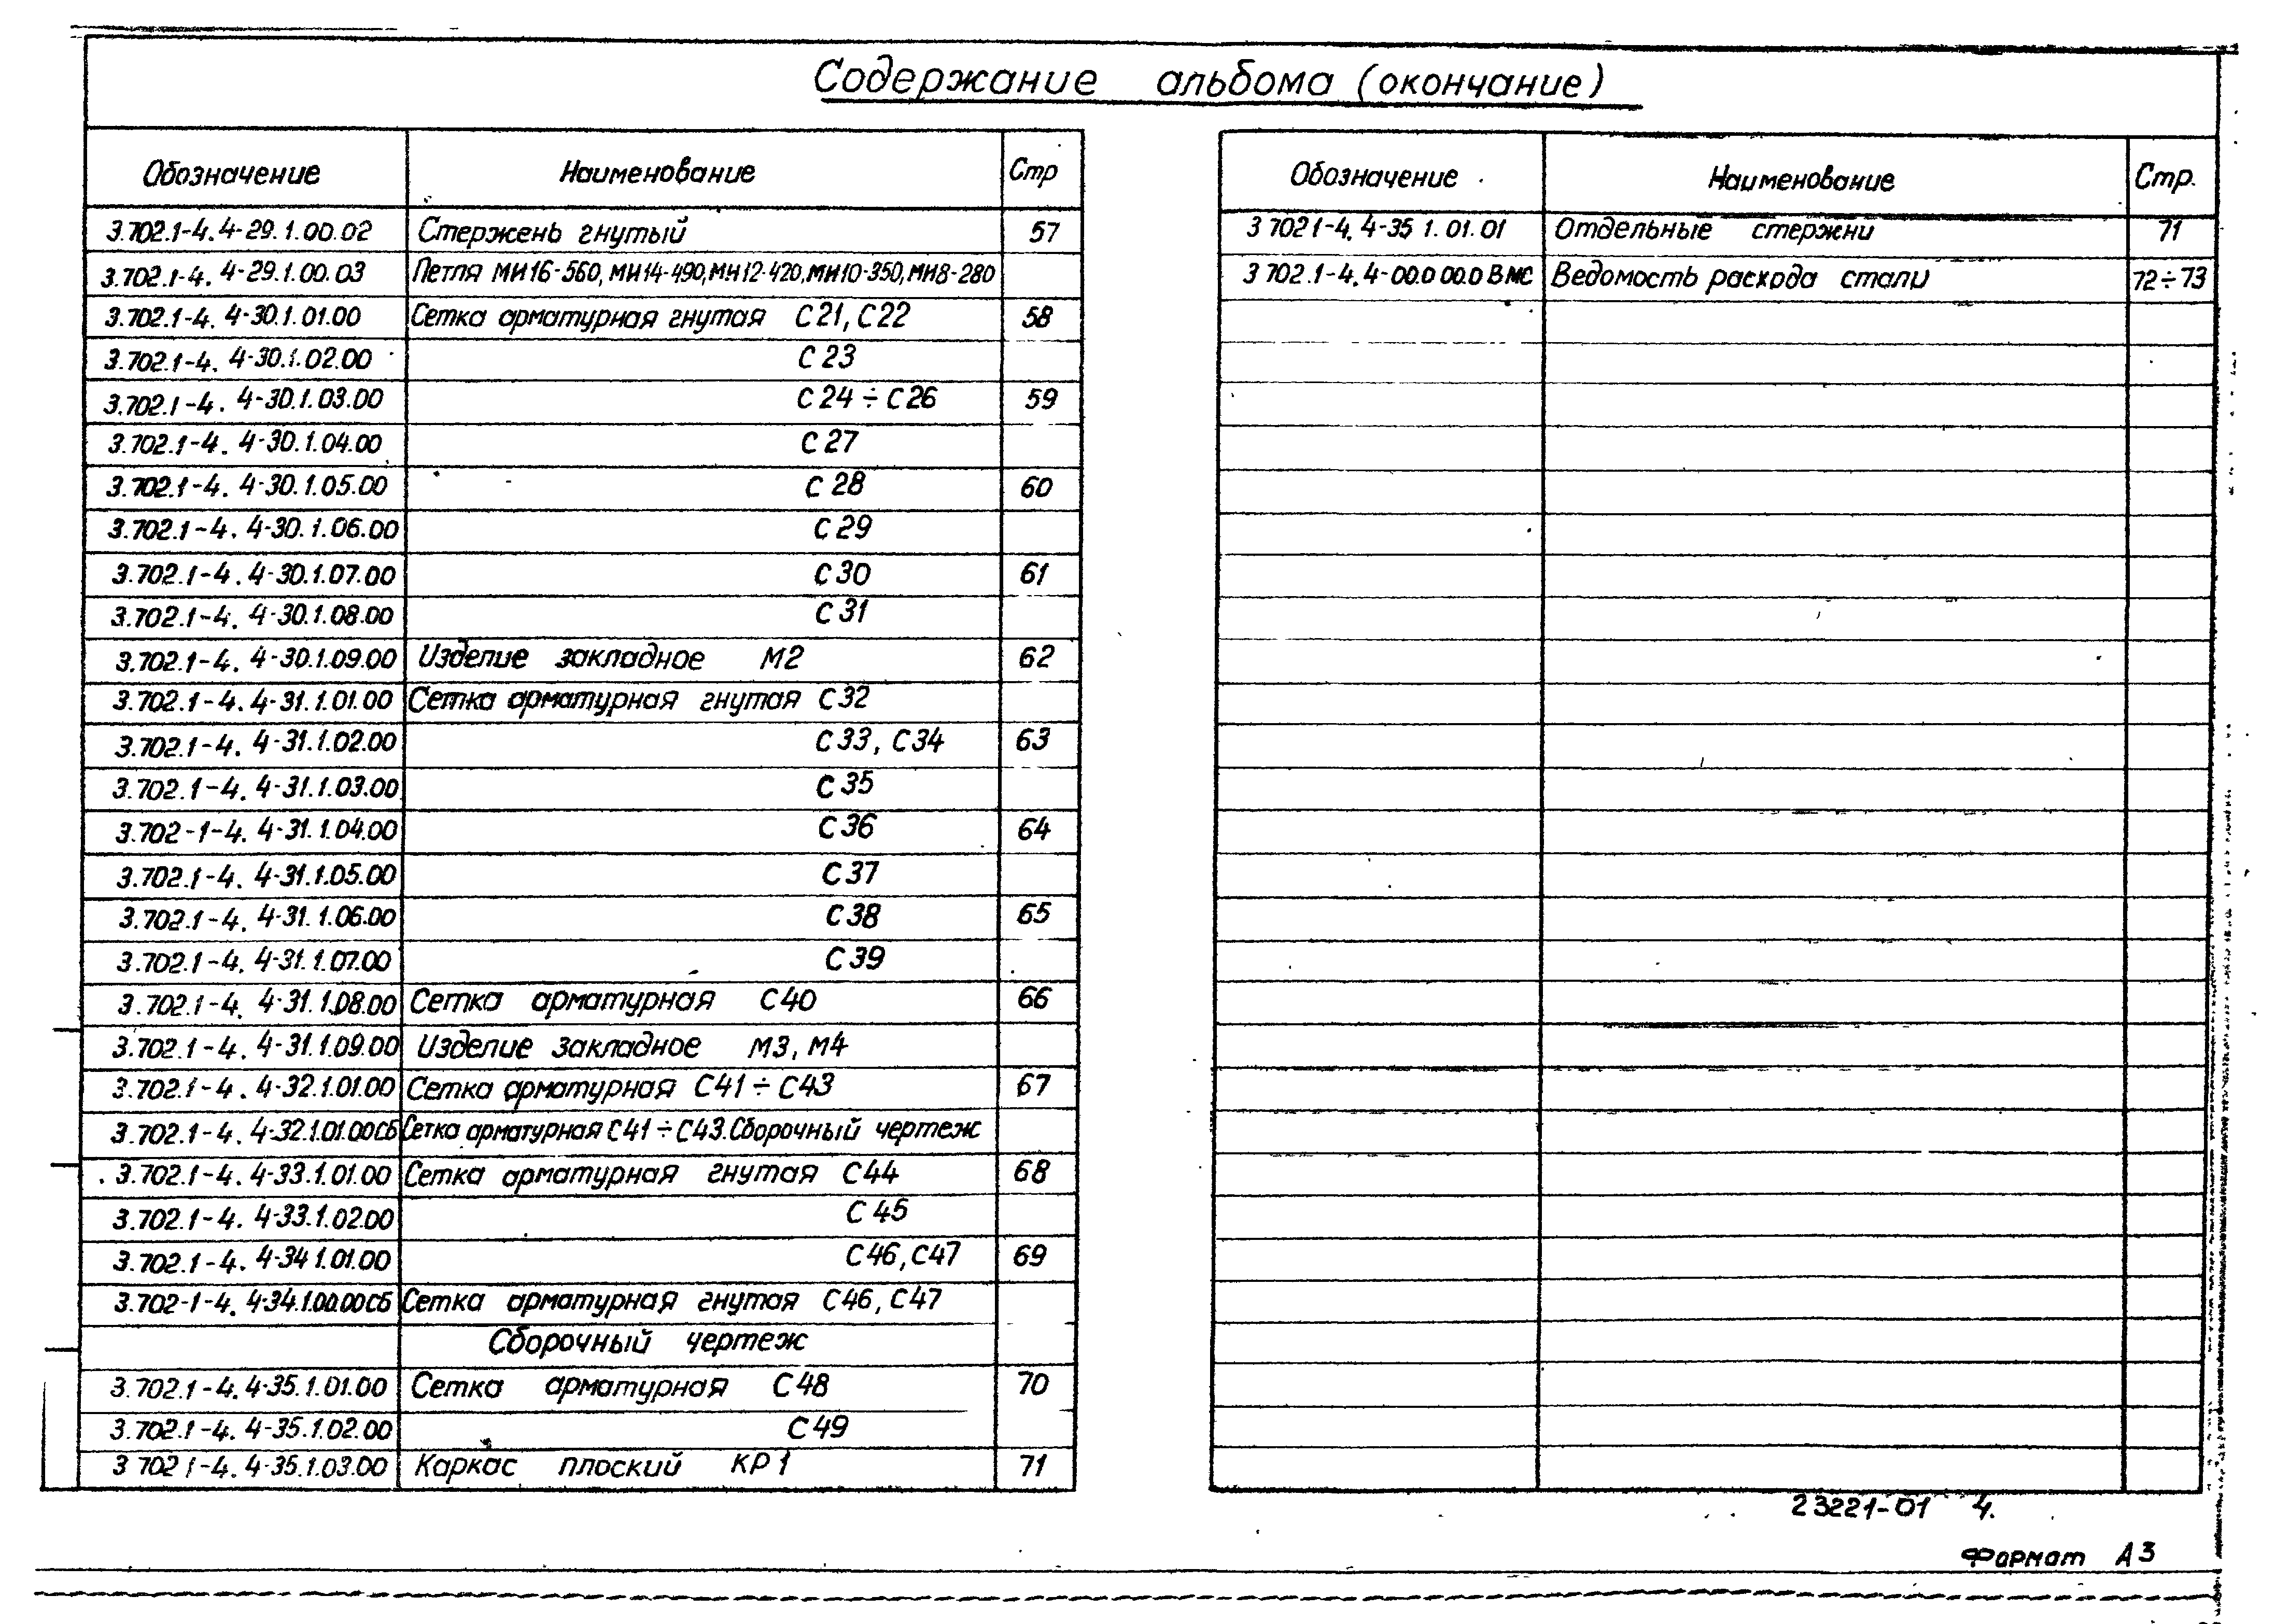 Содержание альбома (окончание)
Обозначение Наименование Стр
3.702.1-4.4-29.1.00.02 Стержень гнутый 57
3.702.1-4.4-29.1.00.03 Петля МН16-560, МН14-490, МН12-420, МН10-350, МН8-280
3.702.1-4.4-30.1.01.00 Сетка арматурная гнутая С21, С22 58
3.702.1-4.4-30.1.02.00 С23
3.702.1-4.4-30.1.03.00 С24÷С26 59
3.702.1-4.4-30.1.04.00 С27
3.702.1-4.4-30.1.05.00 С28 60
3.702.1-4.4-30.1.06.00 С29
3.702.1-4.4-30.1.07.00 С30 61
3.702.1-4.4-30.1.08.00 С31
3.702.1-4.4-30.1.09.00 Изделие закладное М2 62
3.702.1-4.4-31.1.01.00 Сетка арматурная гнутая С32
3.702.1-4.4-31.1.02.00 С33, С34 63
3.702.1-4.4-31.1.03.00 С35
3.702-1-4.4-31.1.04.00 С36 64
3.702.1-4.4-31.1.05.00 С37
3.702.1-4.4-31.1.06.00 С38 65
3.702.1-4.4-31.1.07.00 С39
3.702.1-4.4-31.1.08.00 Сетка арматурная С40 66
3.702.1-4.4-31.1.09.00 Изделие закладное М3, М4
3.702.1-4.4-32.1.01.00 Сетка арматурная С41÷С43 67
3.702.1-4.4-32.1.01.00СБ Сетка арматурная С41÷С43. Сборочный чертеж
3.702.1-4.4-33.1.01.00 Сетка арматурная гнутая С44 68
3.702.1-4.4-33.1.02.00 С45
3.702.1-4.4-34 1.01.00 С46, С47 69
3.702-1-4.4-34.1.00.00СБ Сетка арматурная гнутая С46, С47
Сборочный чертеж
3.702.1-4.4-35.1.01.00 Сетка арматурная С48 70
3.702.1-4.4-35.1.02.00 С49
3 702 1-4.4-35.1.03.00 Каркас плоский КР1 71
Обозначение Наименование Стр.
3 702 1-4.4-35 1.01.01 Отдельные стержни 71
3 702.1-4.4-00.0 00.0 ВМС Ведомость расхода стали 72÷73
23221-01 4.
Формат А3